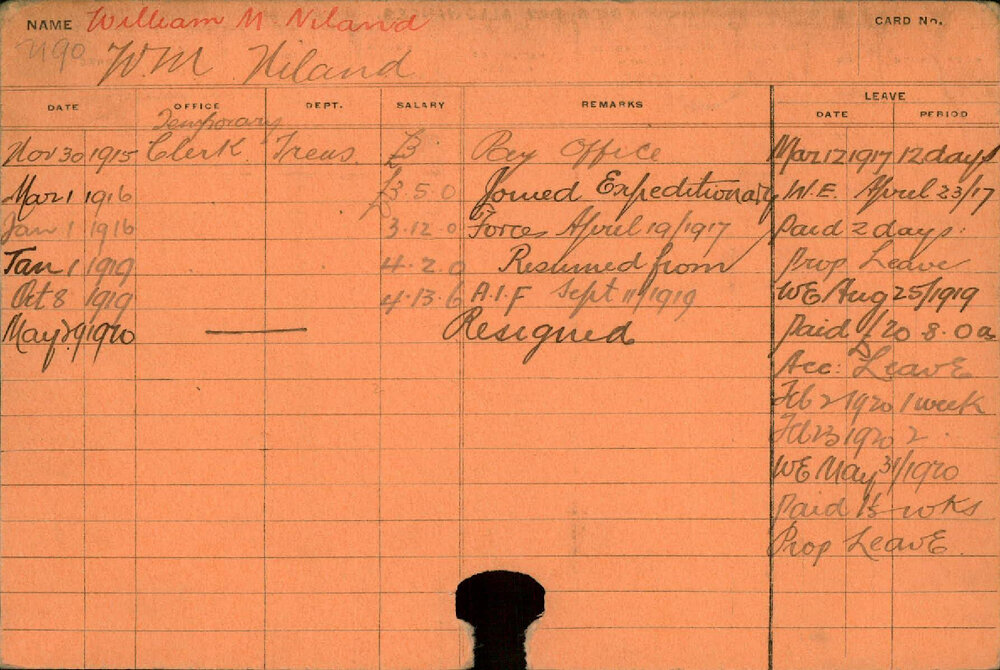 NAME William M Niland CARD No.
W M Niland
DATE OFFICE DEPT. SALARY REMARKS LEAVE
DATE PERIOD
Temporary
Nov 30 1915 Clerk Treas. £3 Pay Office Mar 12 1917 12 days
Mar 1 1916 £3.5.0 Joined Expeditionary W.E. April 23/17
Jan 1 1916 3.12.0 Forces April 19/1917 Paid 2 days.
Jan 1 1919 4.2.0 Resumed from Prop Leave
Oct 8 1919 4.13.6 A.I.F Sept 11/1919 WE Aug 25/1919
May 29 1920 — Resigned Paid £20.8.0 as
Acc: Leave
Feb 2 1920 1 week
Feb 23 1920 2 "
WE May 31/1920
Paid wks
Prop Leave.